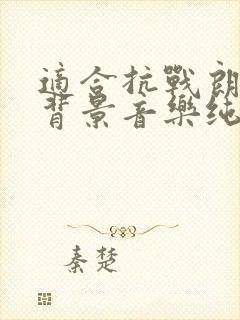 適合抗戰朗
背景音樂純
秦楚